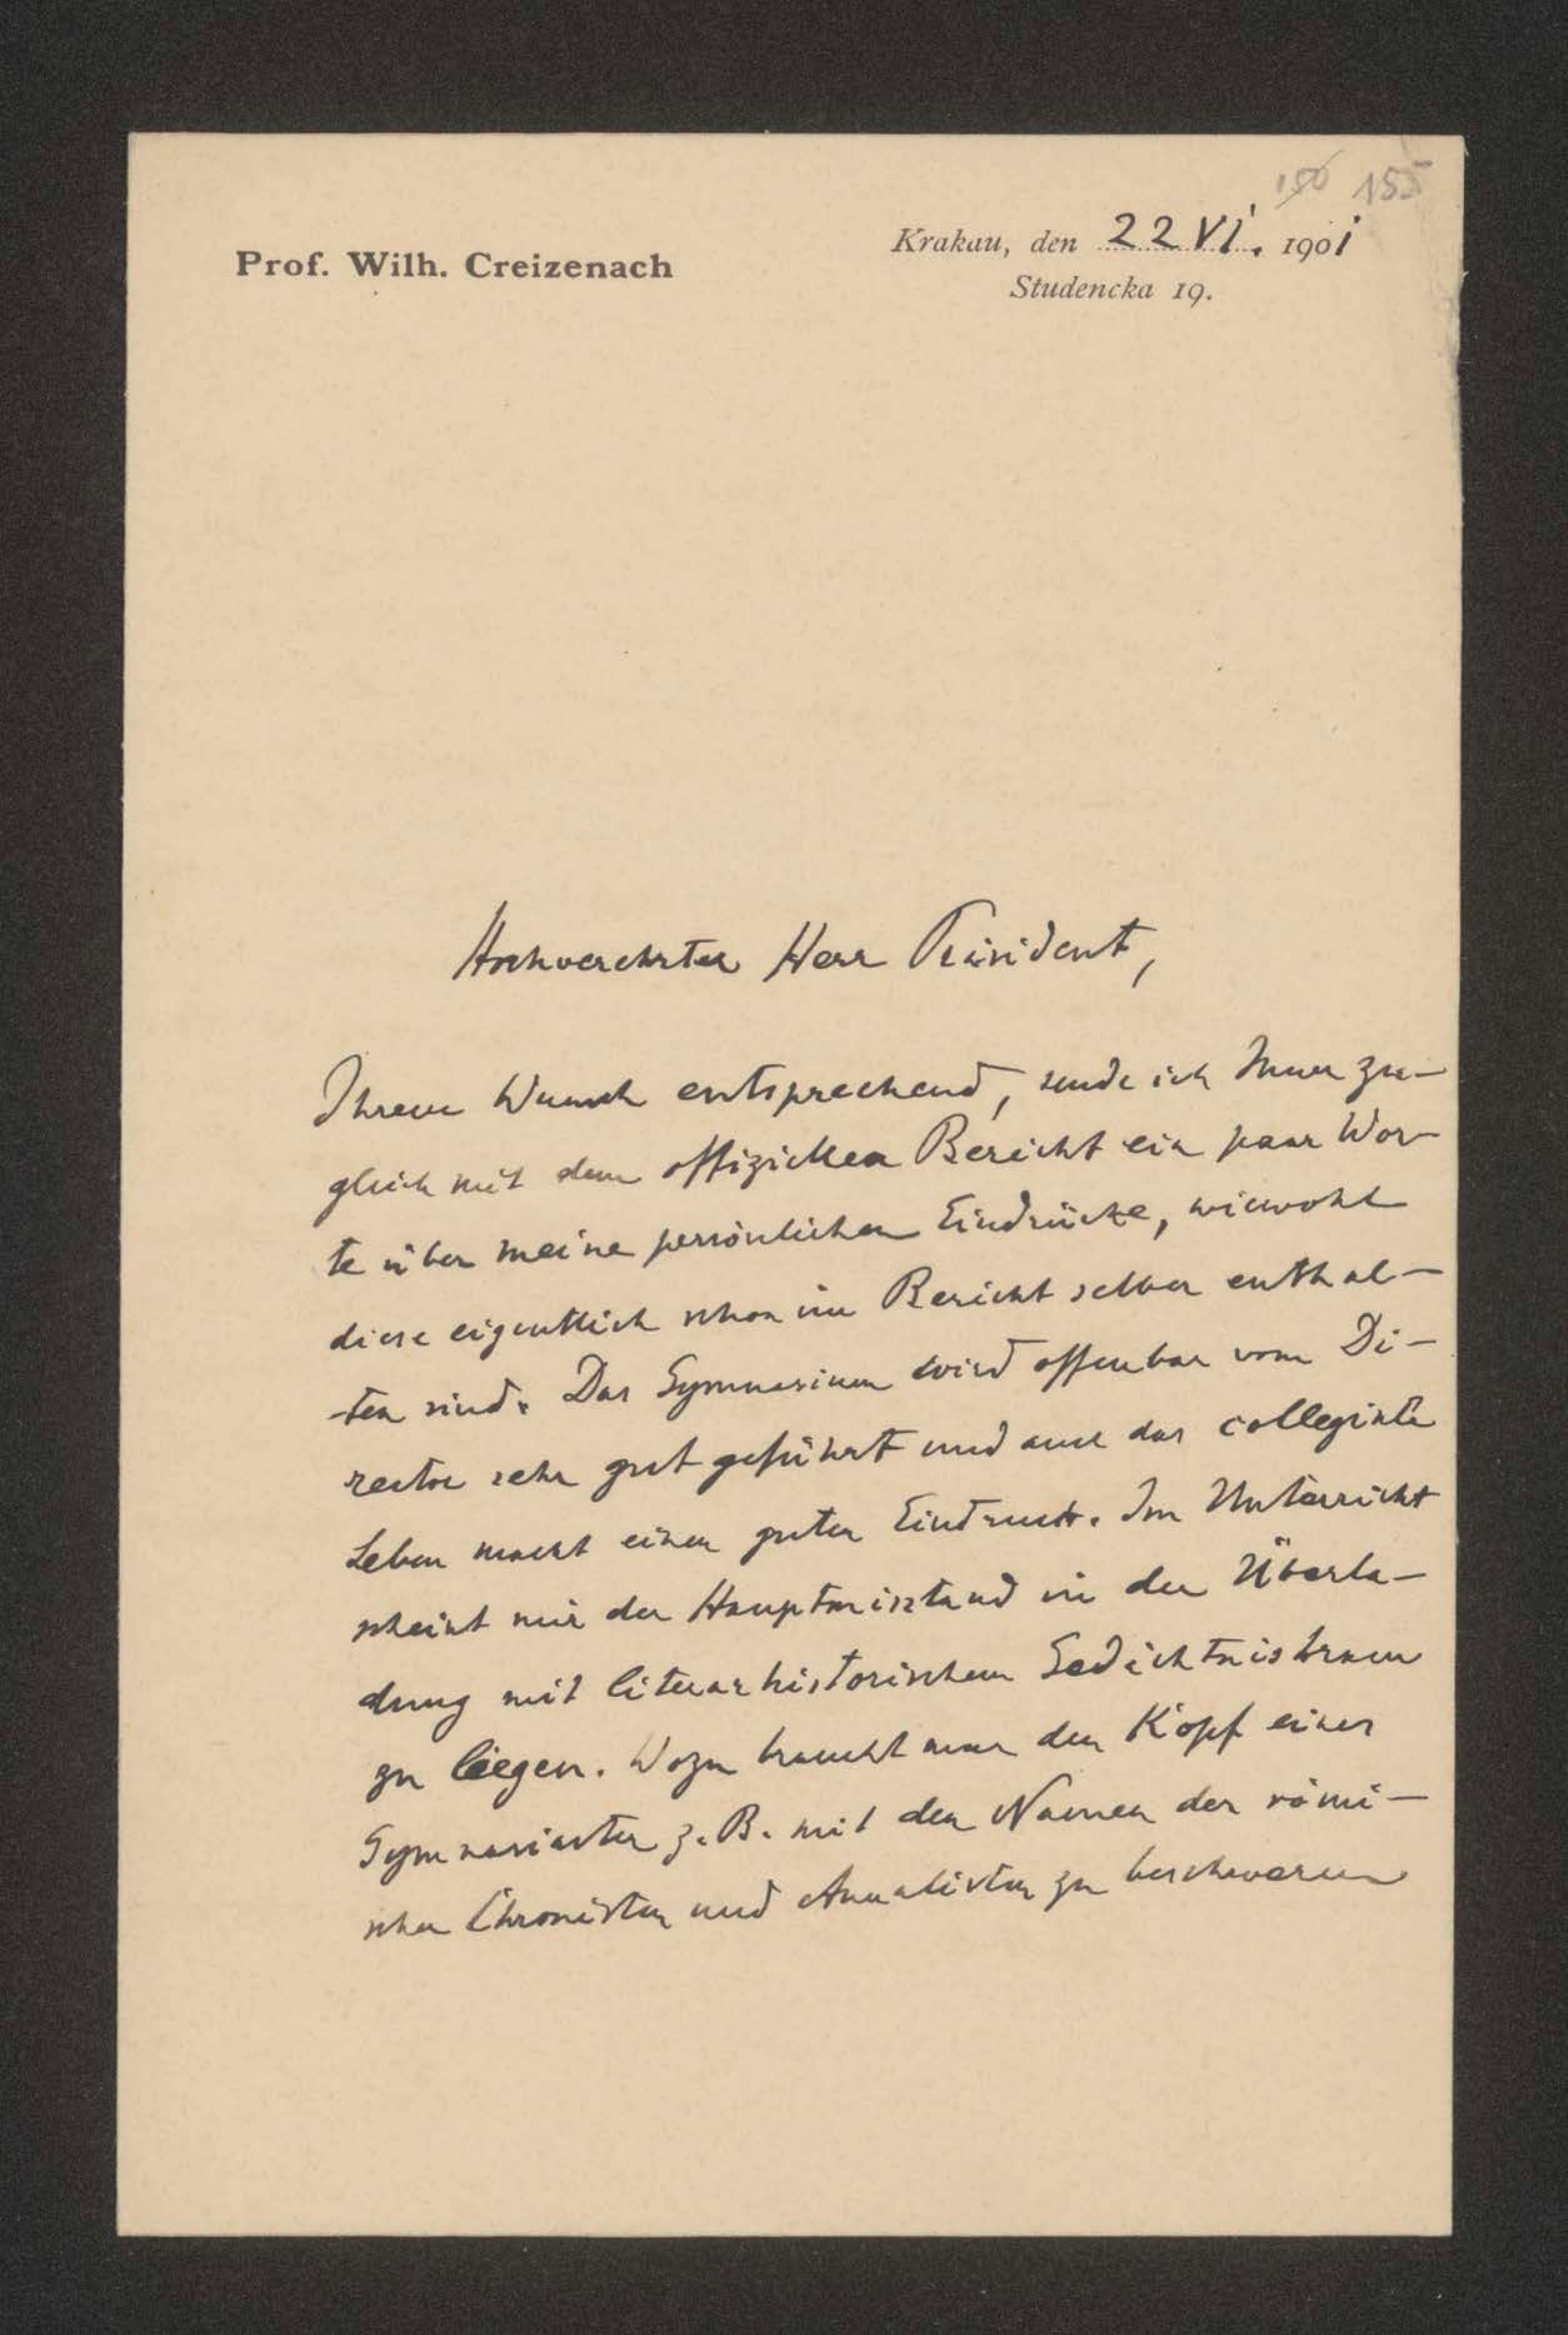 150 155
Prof. Wilh. Creizenach
Krakau, den 22 VI. 1901
Studencka 19.
Hochverehrter Herr Präsident,
Ihrem Wunsch entsprechend, sende ich Ihnen zu-
gleich mit dem offiziellen Bericht ein paar Wor-
te über meine persönlichen Eindrücke, wiewohl
diese eigentlich schon im Bericht selber enthal-
-ten sind. Das Gymnasium wird offenbar vom Di-
rector sehr gut geführt und auch das collegiale
Leben macht einen guten Eindruck. Im Unterricht
scheint mir der Hauptmisstand in der Überla-
dung mit literarhistorischem Gedächtniskram
zu liegen. Wozu braucht man den Kopf eines
Gymnasiasten z. B. mit den Namen der römi-
schen Chronisten und Annalisten zu beschweren